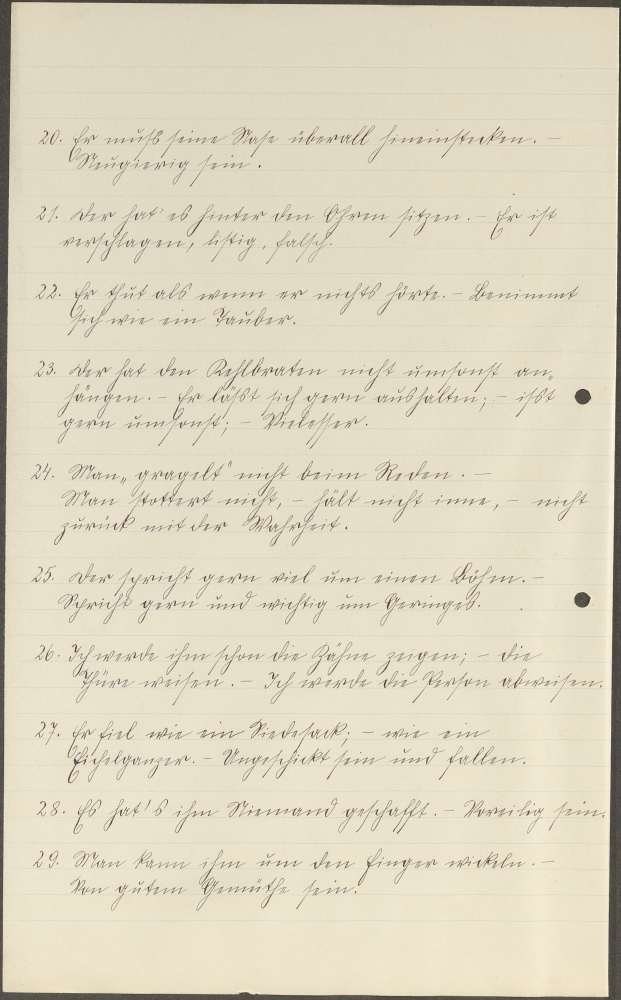 20. Er muß seine Nase überall hineinstecken. –
Neugierig sein.
21. Der hat es hinter den Ohren sitzen. – Er ist
verschlagen, listig, falsch.
22. Er thut als wenn er nichts hörte. – Benimmt
sich wie ein Tauber.
23. Der hat den Kehlbraten nicht umsonst an„
hängen. – Er läßt sich gern aushalten; – ißt
gern umsonst; – Vielesser.
24. Man „gragelt" nicht beim Reden. –
Man stottert nicht, – hält nicht inne, – nicht
zurück mit der Wahrheit.
25. Der spricht gern viel um einen Böhm. –
Spricht gern und wichtig um Geringes.
26. Ich werde ihm schon die Zähne zeigen; – die
Thüre weisen. – Ich werde die Person abweisen.
27. Er fiel wie ein Siedesack; – wie ein
Eichelganzer. – Ungeschickt sein und fallen.
28. Es hat's ihm Niemand geschafft. – Voreilig sein.
29. Man kann ihm um den Finger wickeln. –
Von gutem Gemüthe sein.